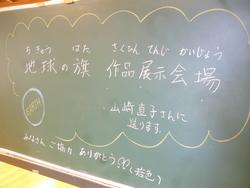 ちきゅう はた さくひん てんじ かいじょう
地球の旗 作品展示会場
EARTH
山崎直子さんに
送ります
みなさん ご協力 ありがとう